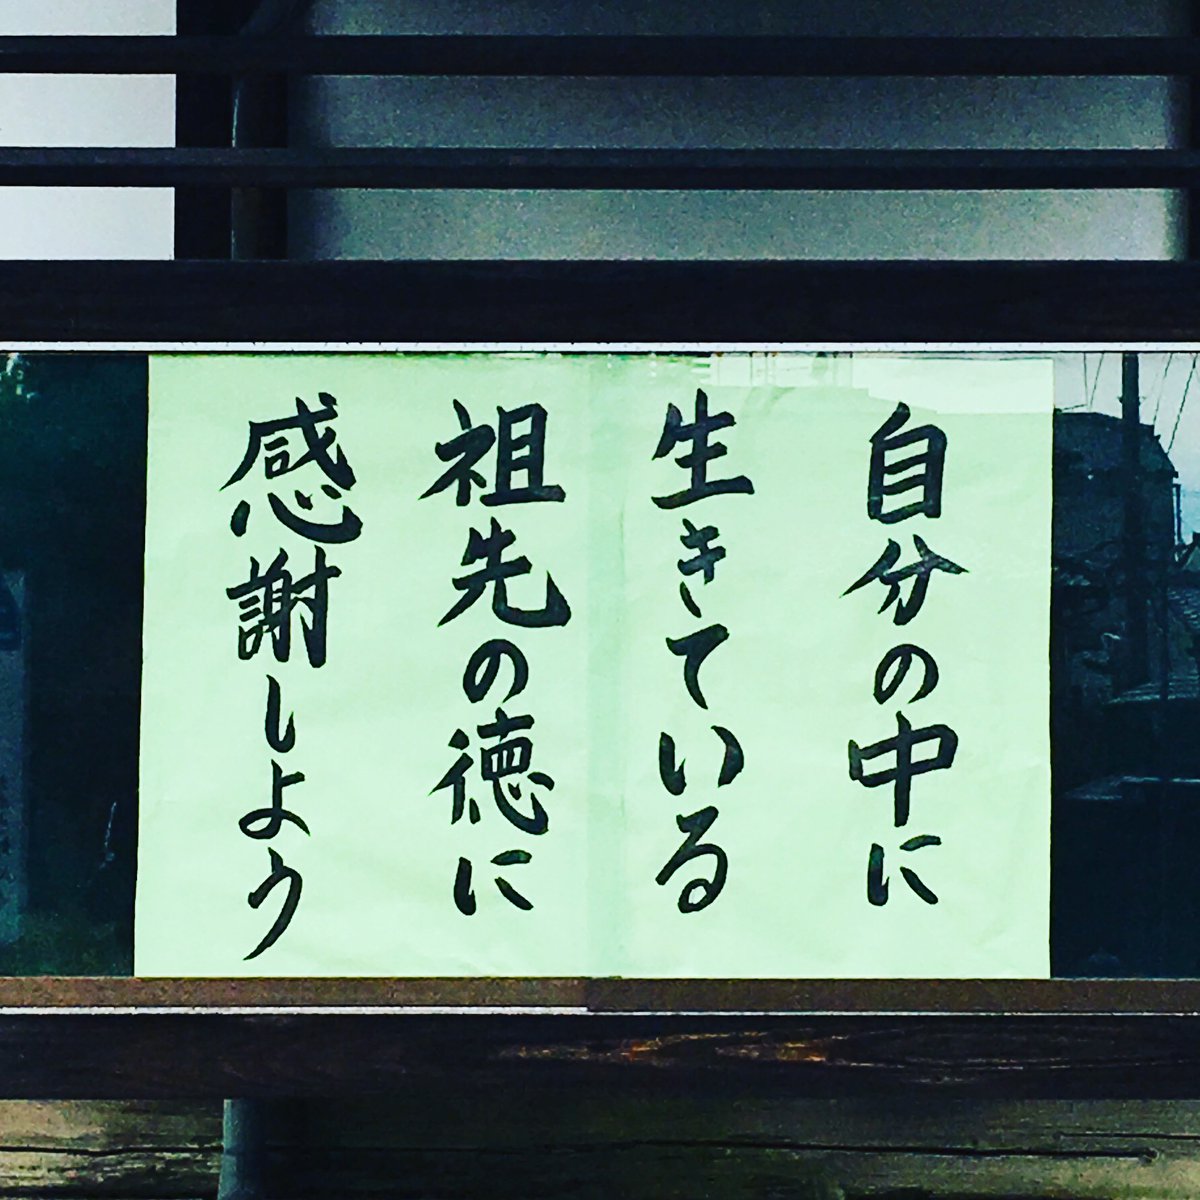 自分の中に
生きている
祖先の徳に
感謝しよう